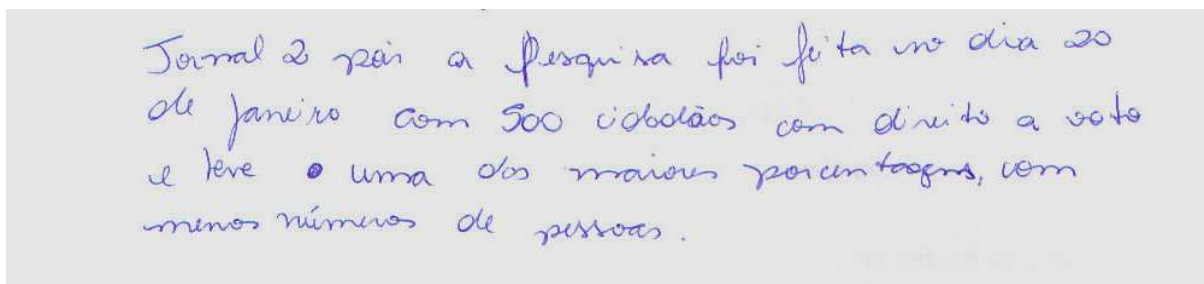 Jornal 2 pois a Pesquisa foi feita no dia 20
de janeiro com 500 cidadãos com direito a voto
e teve uma das maiores porcentagens, com
menos números de pessoas.